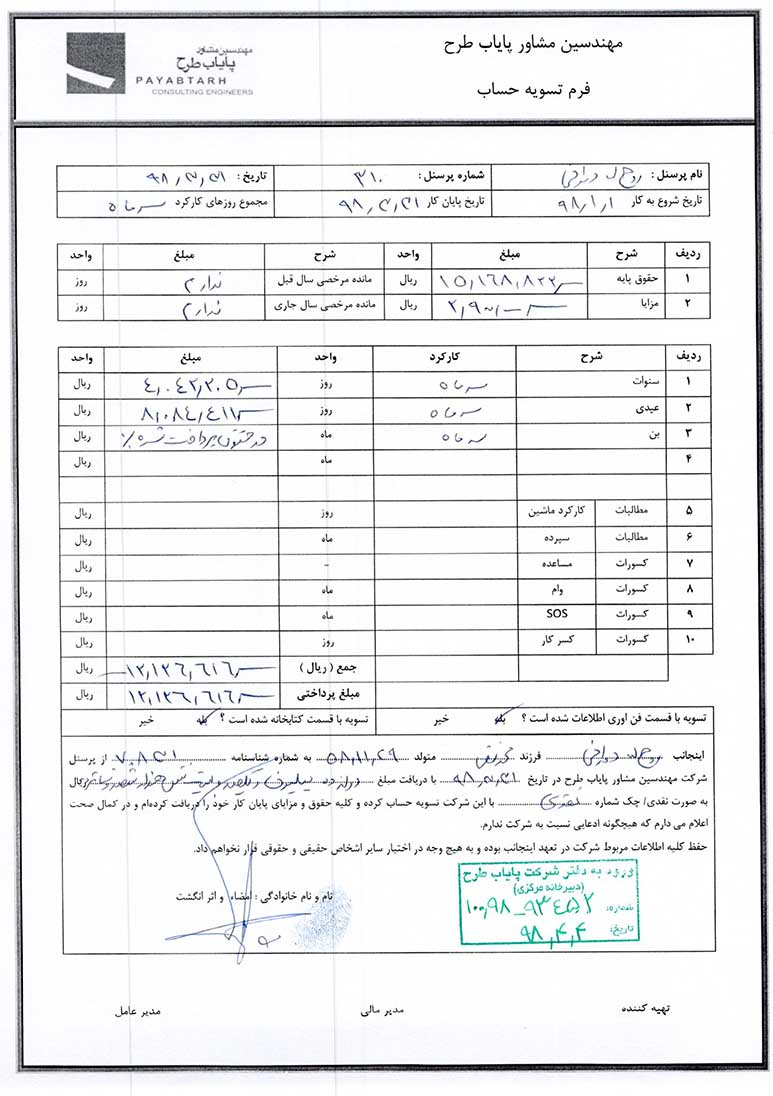 مهندسین مشاور پایاب طرح
فرم تسویه حساب
مهندسین مشاور
پایاب طرح
PAYABTARH
CONSULTING ENGINEERS
نام پرسنل : روح اله شماره پرسنل : ۳۱۰ تاریخ : ۹۸,۳,۳۱
تاریخ شروع به کار ۹۸,۱,۱ تاریخ پایان کار ۹۸,۳,۳۱ مجموع روزهای کارکرد سه ماه
ردیف شرح مبلغ واحد شرح مبلغ واحد
۱ حقوق پایه ۱۵,۱۶۸,۸۲۲ ریال مانده مرخصی سال قبل ندارم روز
۲ مزایا ریال مانده مرخصی سال جاری ندارم روز
ردیف شرح کارکرد واحد مبلغ واحد
۱ سنوات سه ماه روز ۴,۰۴۲,۲۰۵ ریال
۲ عیدی سه ماه روز ۸,۰۸۴,۴۱۱ ریال
۳ بن سه ماه ماه در حقوق پرداخت شده ریال
۴ ماه ریال
۵ مطالبات کارکرد ماشین روز ریال
۶ مطالبات سپرده ماه ریال
۷ کسورات مساعده - ریال
۸ کسورات وام ماه ریال
۹ کسورات SOS ماه ریال
۱۰ کسورات کسر کار روز ریال
جمع ( ریال ) ۱۲,۱۲۶,۶۱۶ ریال
مبلغ پرداختی ۱۲,۱۲۶,۶۱۶ ریال
تسویه با قسمت فن اوری اطلاعات شده است ؟ بله خیر تسویه با قسمت کتابخانه شده است ؟ بله خیر
اینجانب روح اله فرزند متولد ۵۸,۱۱,۲۹ به شماره شناسنامه ۷۰۸۳۱ از پرسنل
شرکت مهندسین مشاور پایاب طرح در تاریخ ۹۸,۳,۳۱ با دریافت مبلغ دوازده میلیون و یکصد و بیست و شش هزار و ششصد و شانزده ریال
به صورت نقدی/ چک شماره نقدی با این شرکت تسویه حساب کرده و کلیه حقوق و مزایای پایان کار خود را دریافت کرده‌ام و در کمال صحت
اعلام می دارم که هیچگونه ادعایی نسبت به شرکت ندارم.
حفظ کلیه اطلاعات مربوط شرکت در تعهد اینجانب بوده و به هیچ وجه در اختیار سایر اشخاص حقیقی و حقوقی قرار نخواهم داد.
ورود به دفتر شرکت پایاب طرح
(دبیرخانه مرکزی)
شماره: ۱۰۰,۹۸_۹۳۴۵۲
تاریخ: ۹۸,۴,۴
نام و نام خانوادگی : امضاء و اثر انگشت
تهیه کننده مدیر مالی مدیر عامل